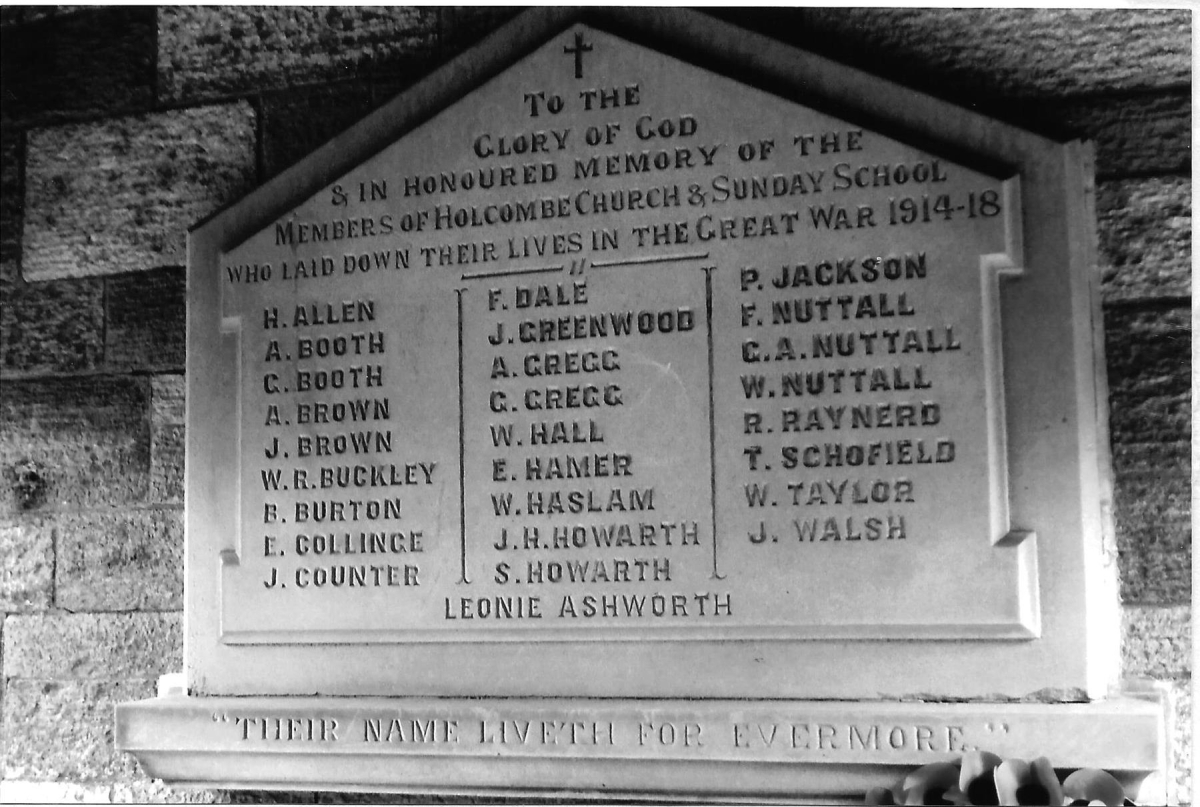 TO THE
GLORY OF GOD
& IN HONOURED MEMORY OF THE
MEMBERS OF HOLCOMBE CHURCH & SUNDAY SCHOOL
WHO LAID DOWN THEIR LIVES IN THE GREAT WAR 1914-18
H. ALLEN
A. BOOTH
G. BOOTH
A. BROWN
J. BROWN
W. R. BUCKLEY
B. BURTON
E. COLLINGE
J. COUNTER
F. DALE
J. GREENWOOD
A. GREGG
G. GREGG
W. HALL
E. HAMER
W. HASLAM
J. H. HOWARTH
S. HOWARTH
P. JACKSON
F. NUTTALL
G. A. NUTTALL
W. NUTTALL
R. RAYNERD
T. SCHOFIELD
W. TAYLOR
J. WALSH
LEONIE ASHWORTH
"THEIR NAME LIVETH FOR EVERMORE."